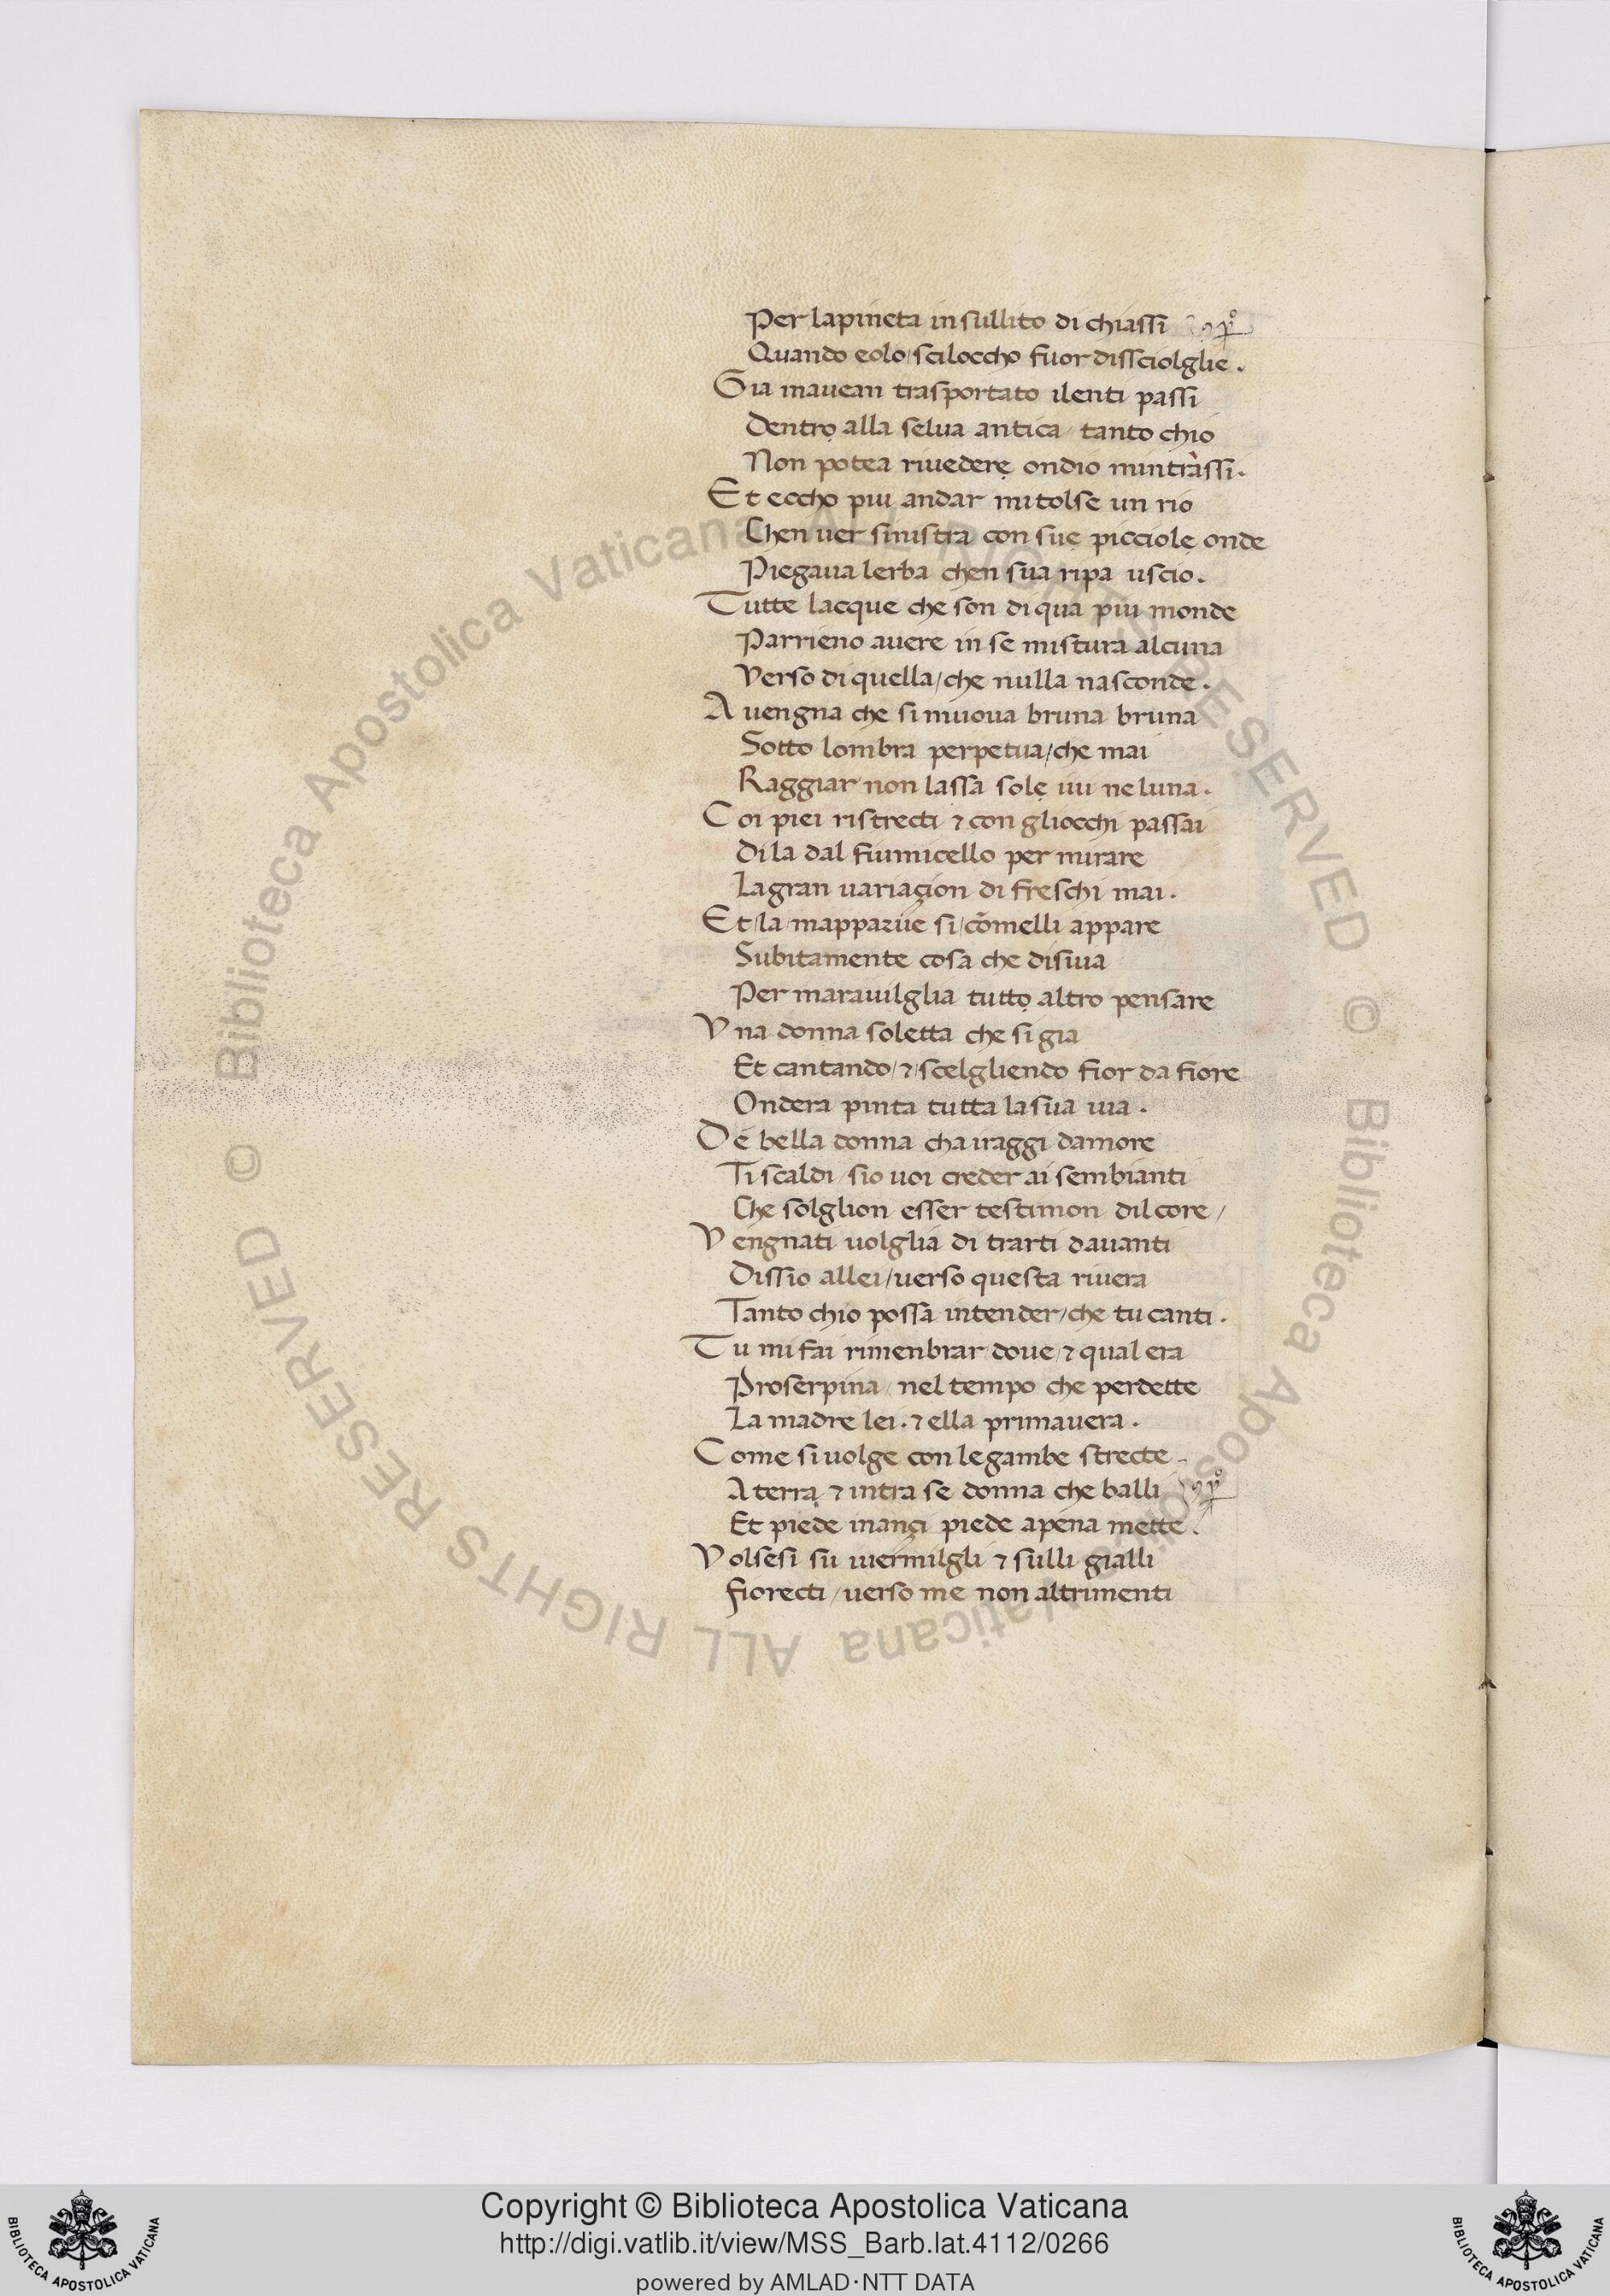 Per lapineta insullito di chiassi
Quando eolo/scilocche fuor dissciolglie.
Gia mauean trasportato ilenti passi
Dentrọ alla selua antica / tanto chio
Non potea riuederẹ ondio mintrassi.
Et eccho piu andar mitolse un rio
Chen uer sinistra con suẹ picciolẹ onde
Piegaua lerba chen sua ripa uscio.
Tutte lacque che son di qua piu monde
Parrieno auere in se mistura alcuna
Verso di quella/che nulla nasconde.
Auengna che si muoua bruna bruna
Sotto lombra perpetua/che mai
Raggiar non lassa solẹ iui ne luna.
Coi piei ristrecti ⁊ con gliocchi passai
Di la dal fiumicello per mirare
La gran uariaçion di freschi mai.
Et/la/mapparue si/cõmelli appare
Subitamente cosa che disuia
Per marauilglia tuttọ altro pensare
Vna donna soletta che si gia
Et cantando/⁊/scelgliendo fior da fiore
Ondera pinta tutta la sua uia.
De bella donna cha iraggi damore
Ti scaldi / sio uoi creder ai sembianti
Che solglion esser testimon dilcore/
Vengnati uolglia di trarti dauanti
Dissio allei/uerso questa riuera
Tanto chio possa intender/che tu canti.
Tu mi fai rimenbrar/doue/⁊ qual era
Proserpina / nel tempo che perdette
La madre lei. ⁊ ella primauera.
Come si uolge con le gambe strecte
A terrạ ⁊ intra se donna che balli
Et piede inançi piede apena mette.
Volsesi su iuermilgli ⁊ sulli gialli
fiorecti/uerso me non altrimenti
© Biblioteca Apostolica Vaticana ALL RIGHTS RESERVED © Biblioteca Apostolica Vaticana ALL RIGHTS RESERVED
Copyright © Biblioteca Apostolica Vaticana
http://digi.vatlib.it/view/MSS_Barb.lat.4112/0266
powered by AMLAD·NTT DATA
BIBLIOTECA APOSTOLICA VATICANA
BIBLIOTECA APOSTOLICA VATICANA